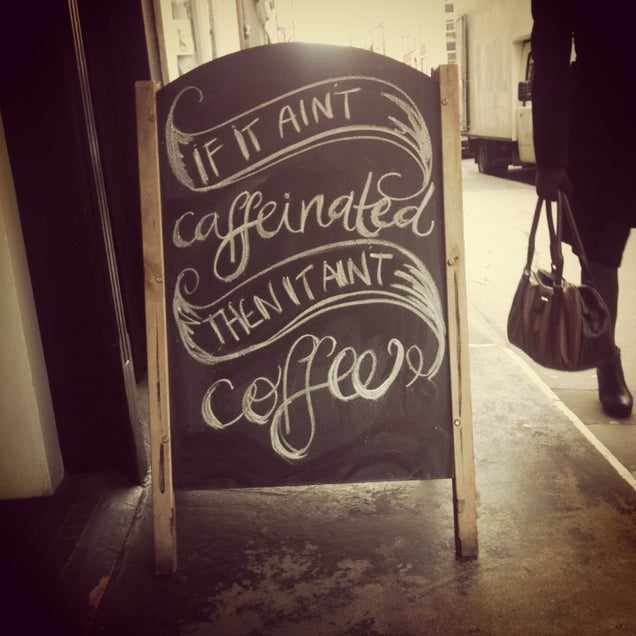 IF IT AIN'T
caffeinated
THEN IT AINT
coffee